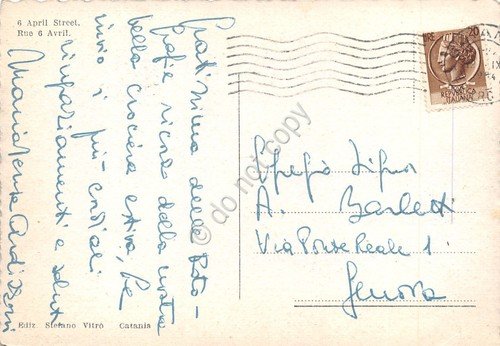 6 April Street.
Rue 6 Avril.
Gratissima delle foto-
grafie ricordo della nostra
bella crociera estiva, Le
invio i più cordiali
ringraziamenti e saluti
Mariateresa
Egregio Signor
A. Barletti
Via Ponte Reale 1
Genova
LIRE 20
REPUBBLICA
ITALIANA
Ediz Stefano Vitrò Catania
do not copy